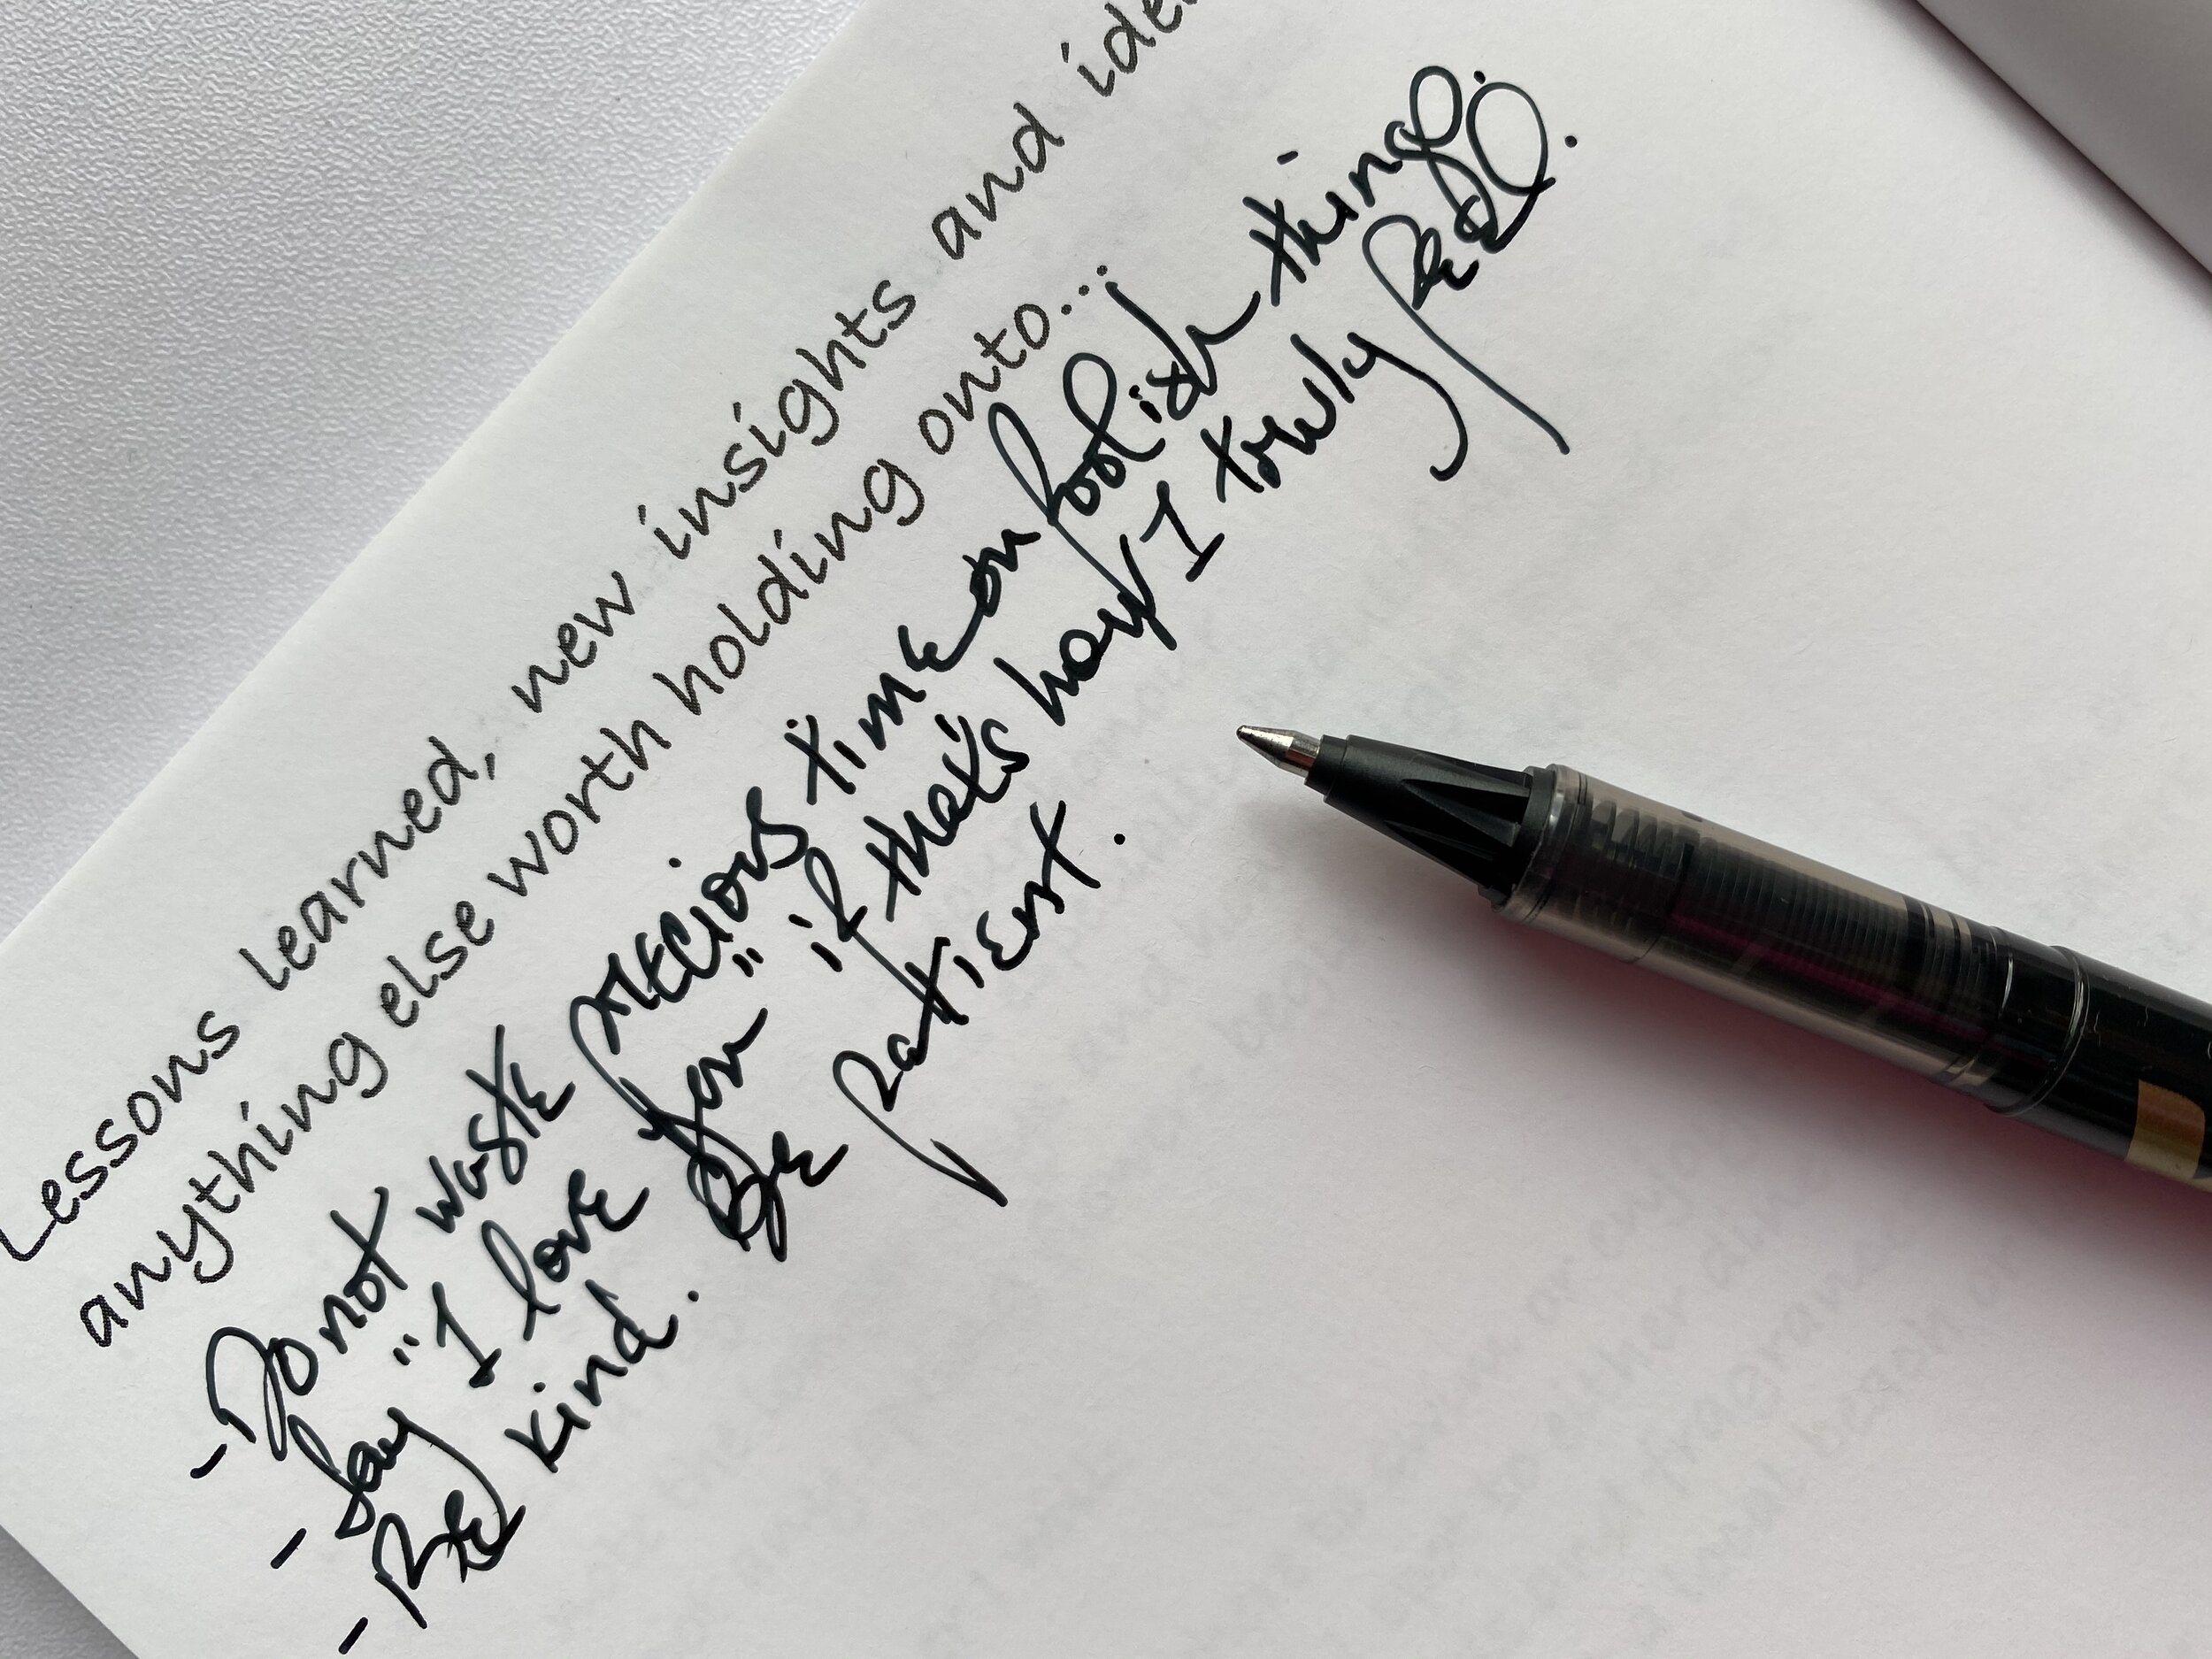 Lessons learned, new insights and ide
anything else worth holding onto...
- Do not waste precious time on foolish things.
- Say "I love you" if that's how I truly feel.
- Be kind. Be patient.